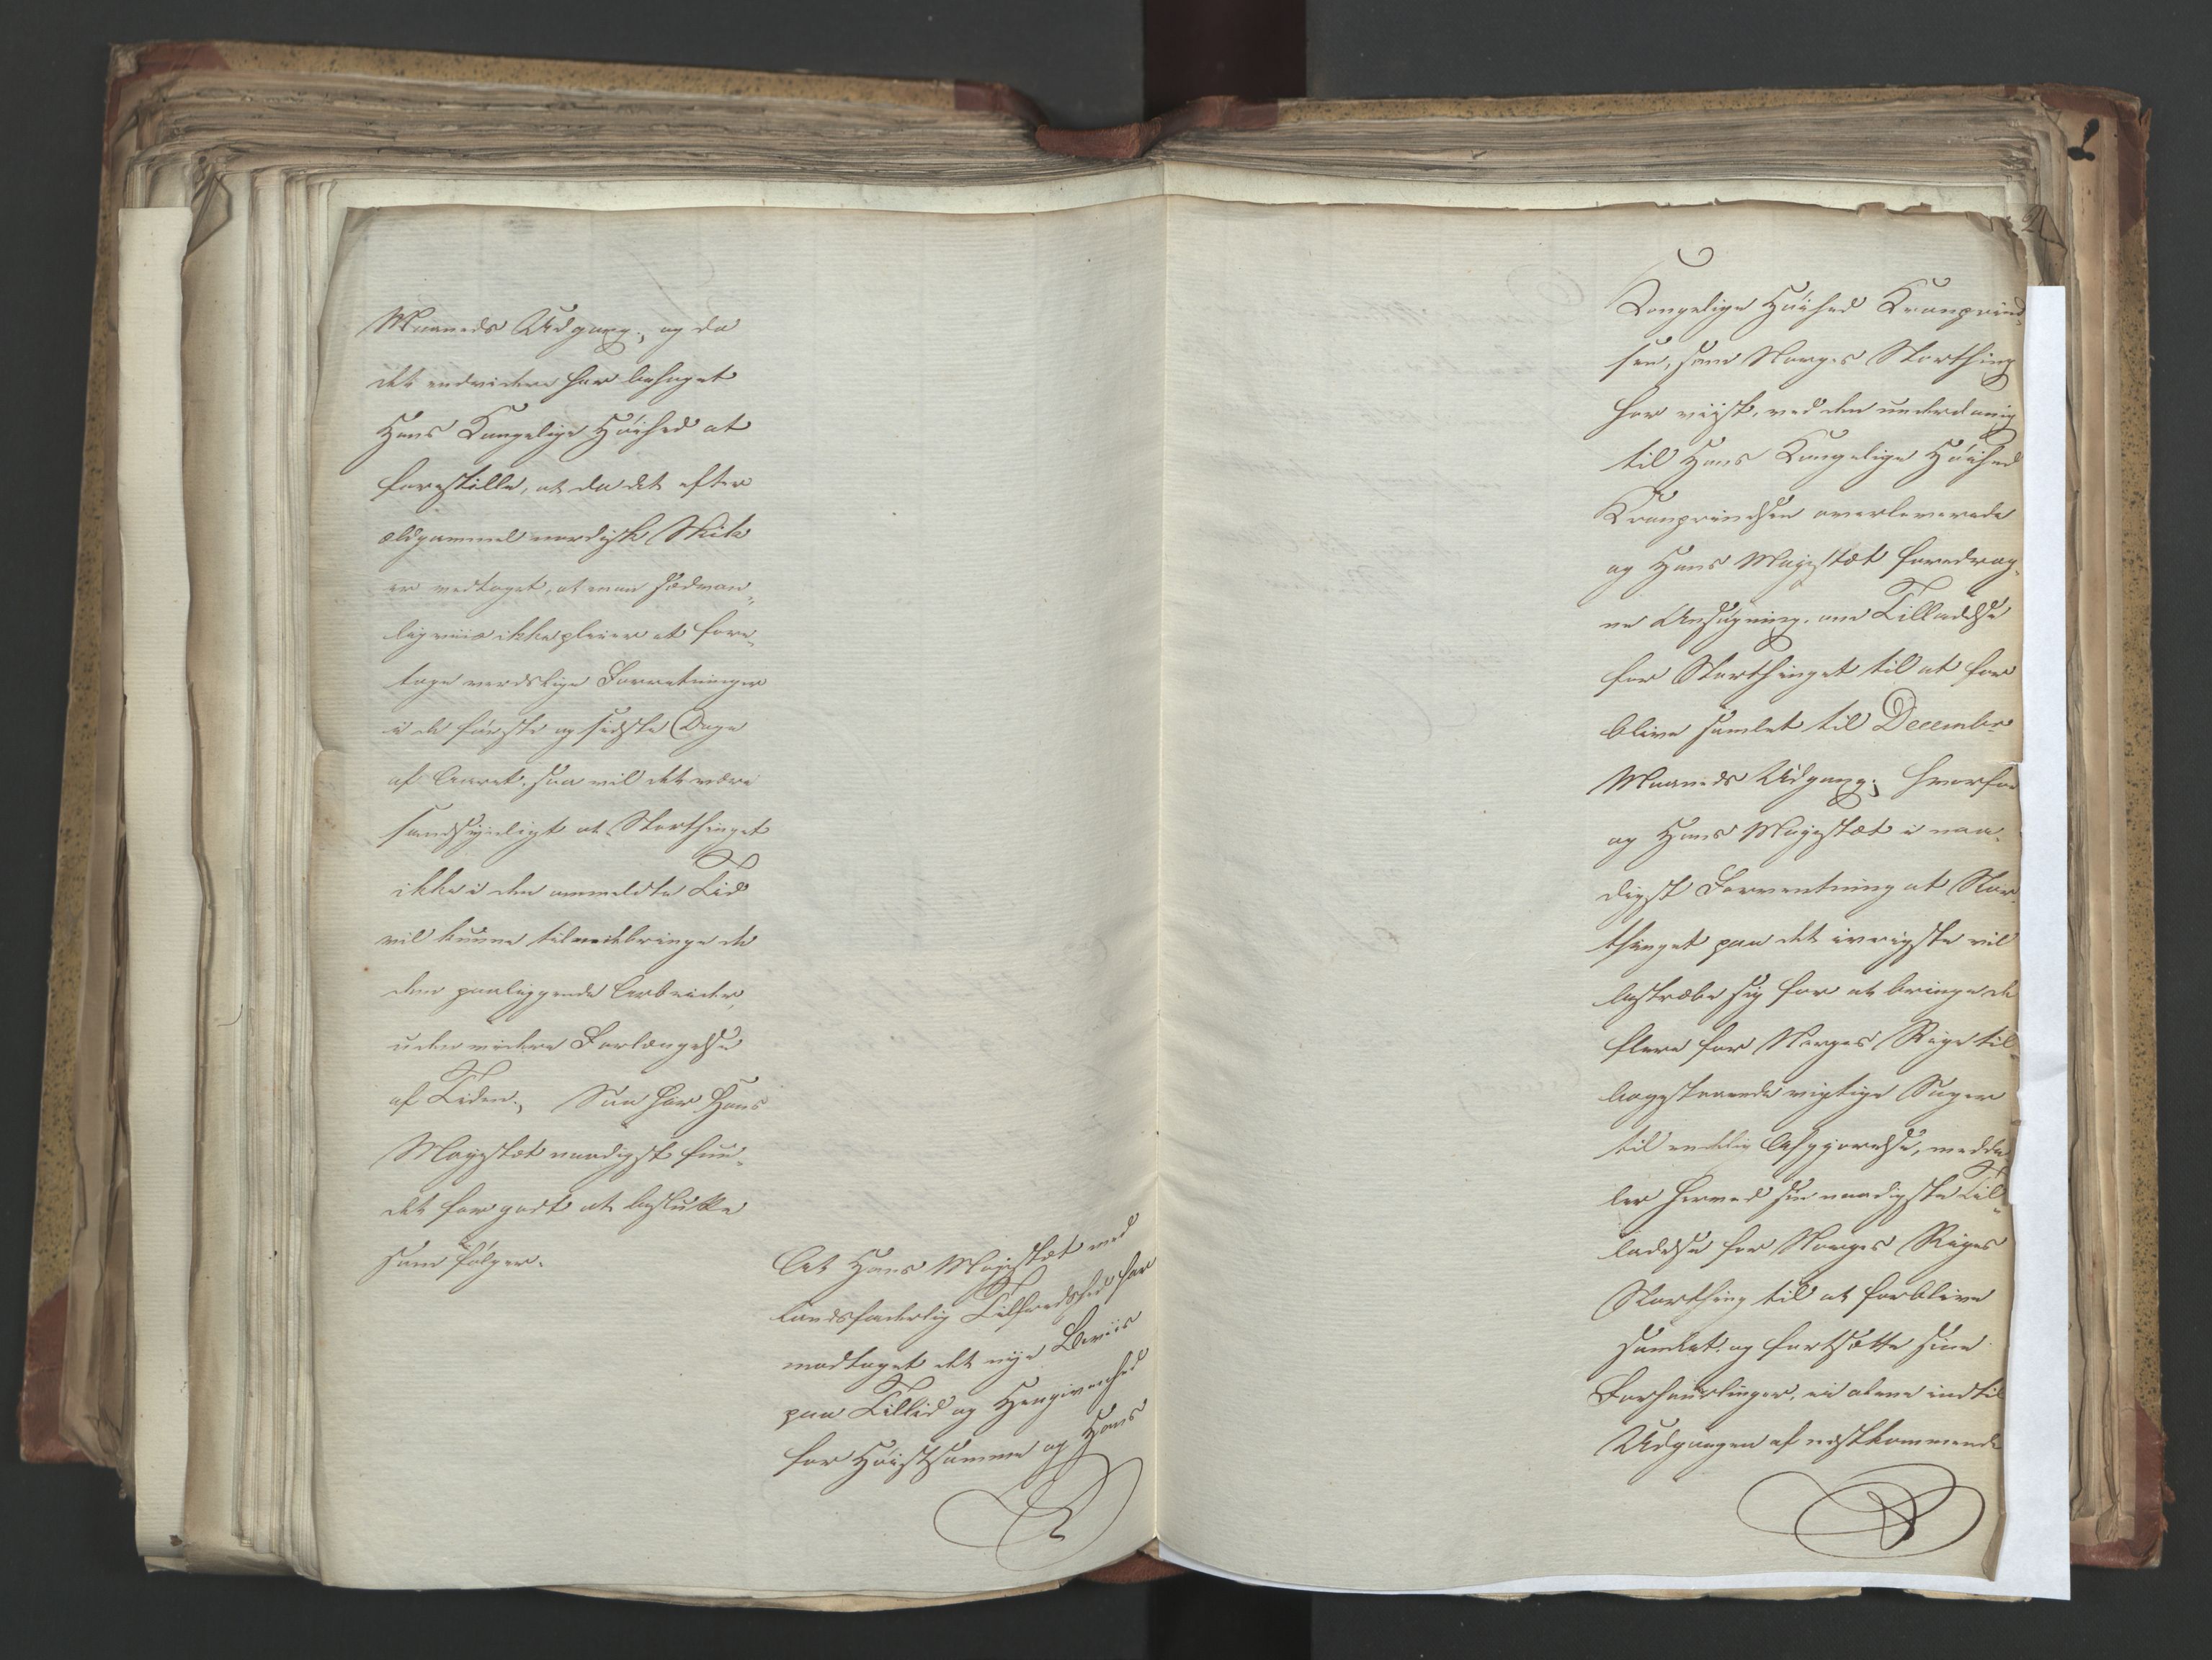 Maaneds Udgang; og da
det endvidere har behaget
Hans Kongelige Høihed at
forestille, at da det efter
ældgammel nordisk Skik
er vedtaget, at man sædvan-
ligviis ikke pleier at fore-
tage verdslige Forretninger
i de første og sidste Dage
af Aaret, saa vil det være
sandsynligt at Storthinget
ikke i den anmeldte Tid
vil kunne tilveiebringe de
dem paaliggende Arbeider,
uden videre Forlængelse
af Tiden; Saa har Hans
Majestæt naadigst fun-
det for godt at beslutte
som følger.
At Hans Majestæt med
landsfaderlig Tilfredshed har
modtaget det nye Beviis
paa Tillid og Hengivenhed
for Høistsamme og Hans
2
Kongelige Høihed Kronprind-
sen, som Norges Storthing
har viist, ved den underdanig
til Hans Kongelige Høihed
Kronprindsen overleverede
og Hans Majestæt foredrag-
ne Ansøgning om Tilladelse
for Storthinget til at for
blive samlet til Decembr
Maaneds Udgang; hvorfor
og Hans Majestæt i naa-
digst Forventning at Stor-
thinget paa det ivrigste vil
bestræbe sig for at bringe de
flere for Norges Rige til-
bagestaaende vigtige Sager
til endelig Afgjørelse, medde
ler herved sin naadigste Til-
ladelse for Norges Riges
Storthing til at forblive
samlet og fortsætte sine
Forhandlinger, ei alene indtil
Udgangen af næstkommende